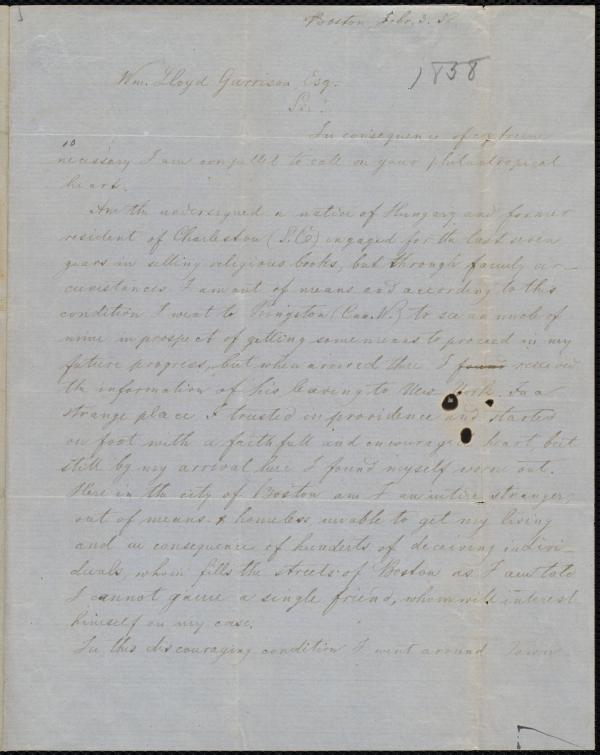 Boston Febr. 3. 58.
1858
Wm. Lloyd Garrison Esq.
Sir!
In consequence of extreme
necessary I am compelled to call on your philantropical
heart.
Am the undersigned a native of Hungary and former
resident of Charleston (S.C) engaged for the last seven
years in selling religious books, but through family cir-
cumstances I am out of means and according to this
condition I went to Kingston (Can. W.) to see an uncle of
mine in prospect of getting some means to proceed in my
future progress, but when arrived there I found received
the information of his leaving to New York. In a
strange place I trusted in providence and started
on foot with a faithfull and encouraged heart, but
still by my arrival here I found myself worn out.
Here in the city of Boston am I an intire stranger,
out of means & homeless, unable to get my living
and in consequence of hunderts of deceiving indivi-
duals, whom fills the streets of Boston as I am told
I cannot gaine a single friend, whom will interest
himself on my case.
In this discouraging condition I went around